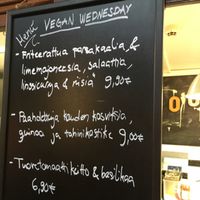 Menu
VEGAN WEDNESDAY
- Friteerattua parsakaalia &
limemajoneesia, salaattia,
linssicurrya & riisiä 9,90€
- Paahdettuja kauden kasviksia,
quinoa ja tahinikastike 9,00€
- Tuoretomaattikeitto & basilikaa
6,90€